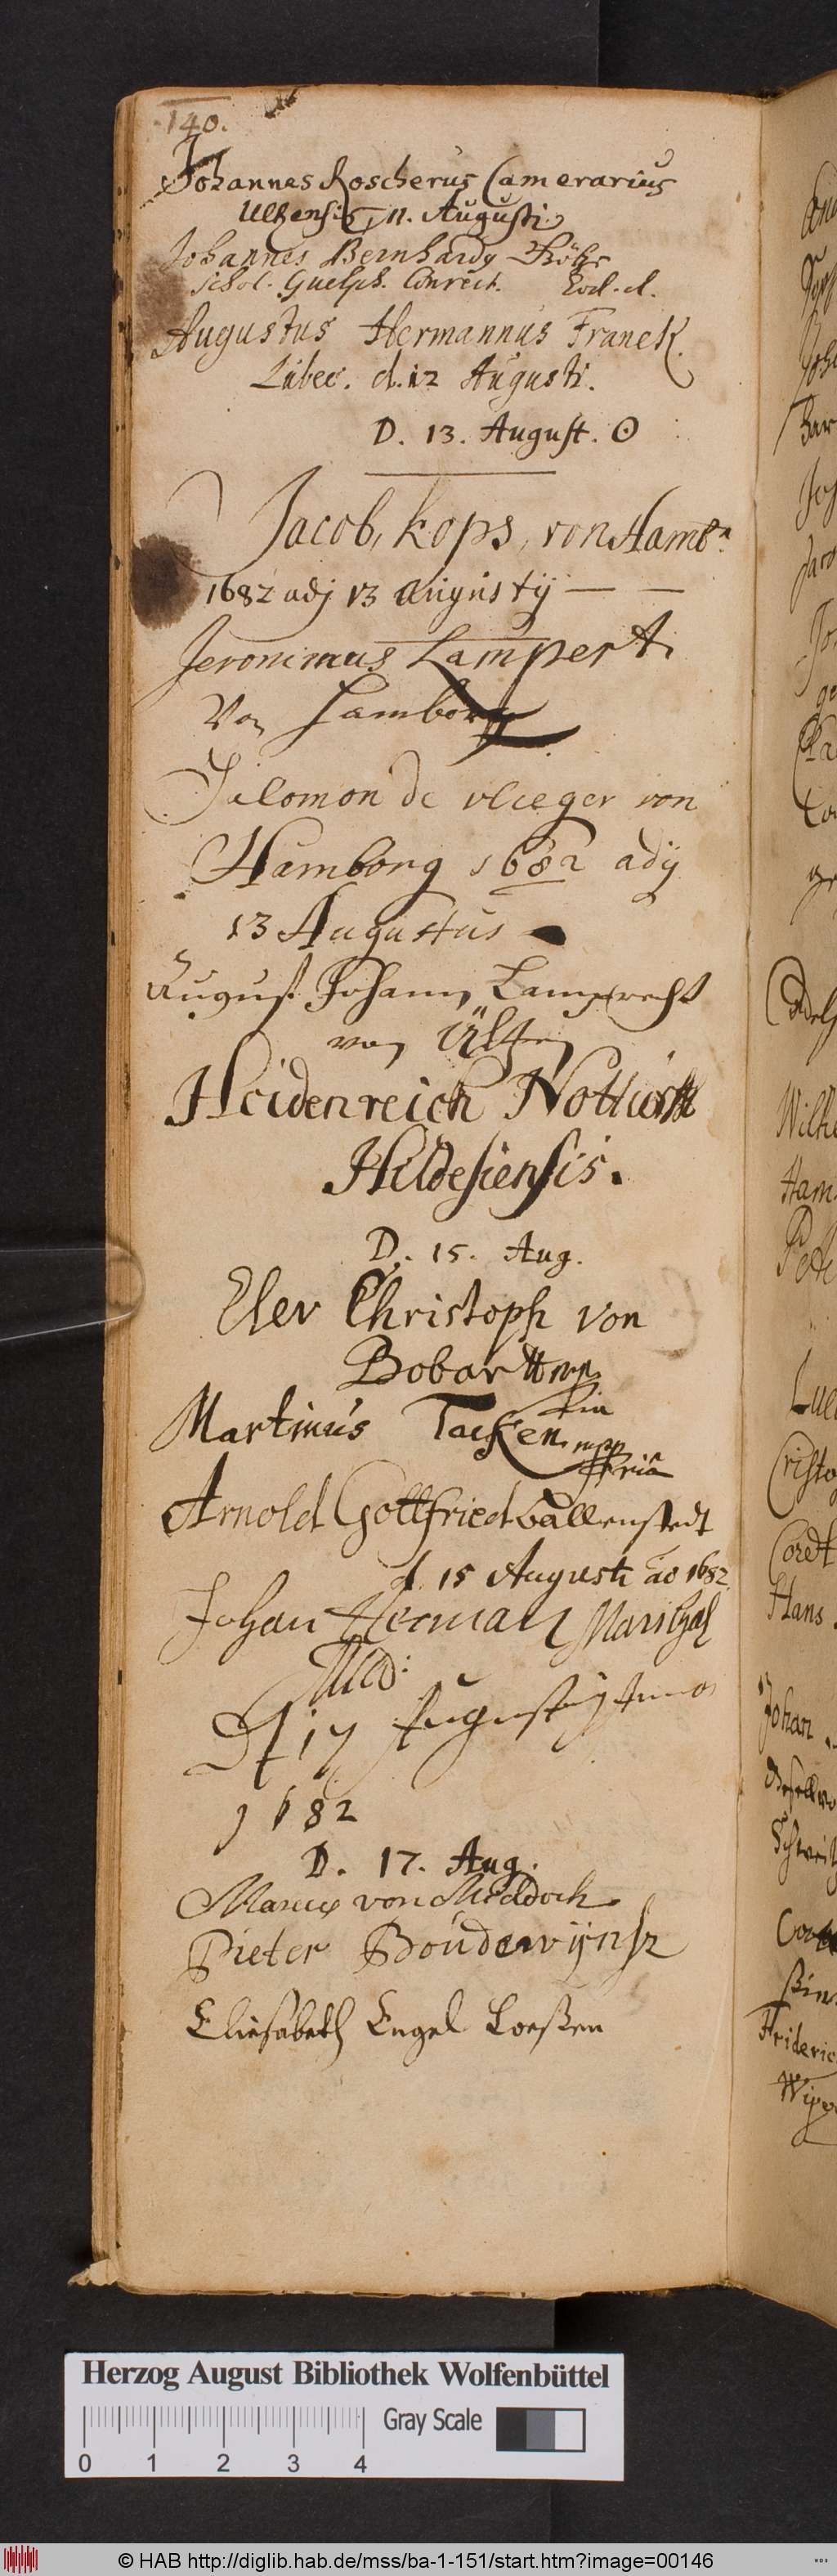 140.
Johannes Roscherus Camerarius
Ultzensis, 11. Augusti
Johannes Bernhardg Röhr
Schol. Guelph. Conrect. Eod. d.
Augustus Hermannus Franck.
Lubec. d. 12 Augusti.
D. 13. August. ☉
Jacob, kops, von Hamb
1682 adj 13 augustij
Jeronimus Lampert
Von Hamborg
Salomon de vlieger von
Hamborg 1682 adij
13 Augustus
August Johann Lamprecht
von Ültzen
Heidenreich
Hildesiensis.
D. 15. Aug.
Eler Christoph von
Bobart
Martinus Tacken
mpp
pria
Arnold Gottfried Ballenstedt
d 15 Augusti ao 1682
Johan Herman
D 17 Augustij Anno
1682
D. 17. Aug.
von Middoch
Pieter Boudewijnsz
Eliesabeth Engel Loeßen
Lue
Cristo
Cordt
Hans
Johan
Frideric
Wilhe
Ham
Herzog August Bibliothek Wolfenbüttel
Gray Scale
0 1 2 3 4
© HAB http://diglib.hab.de/mss/ba-1-151/start.htm?image=00146